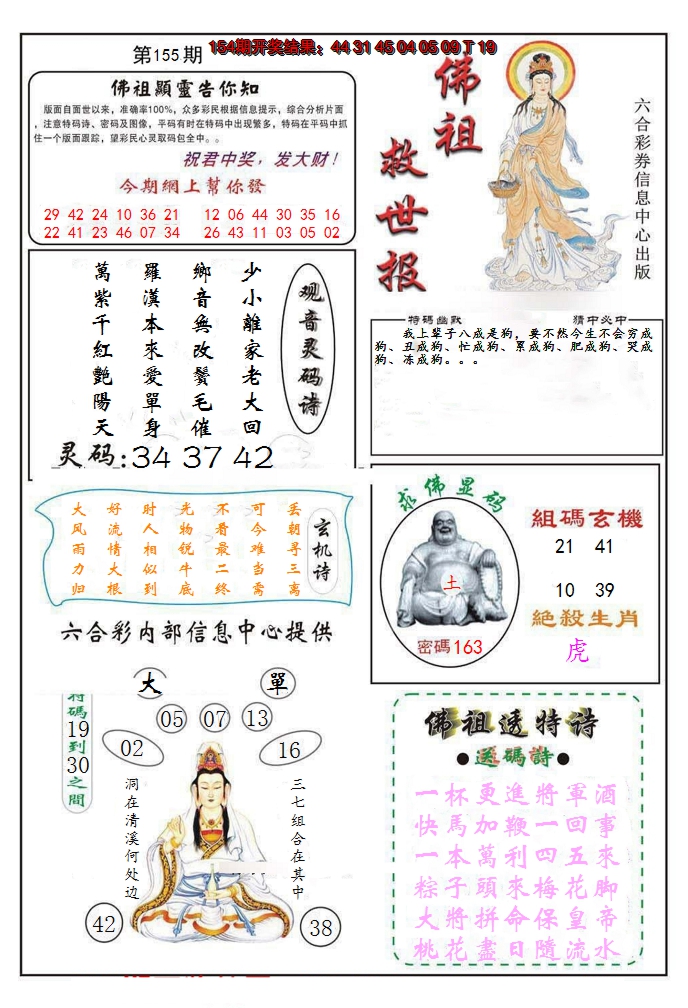 第155期
154期开奖结果：44 31 45 04 05 09 T 19
佛祖顯靈告你知
版面自面世以来，准确率100%，众多彩民根据信息提示，综合分析片面
，注意特码诗、密码及图像，平码有时在特码中出现繁多，特码在平码中抓
住一个版面跟踪，望彩民心灵取码包全中。。
祝君中奖，发大财！
今期網上幫你發
29 42 24 10 36 21 12 06 44 30 35 16
22 41 23 46 07 34 26 43 11 03 05 02
佛祖
救世报
六合彩券信息中心出版
观音灵码诗
少小離家老大回
鄉音無改鬢毛催
羅漢本來愛單身
萬紫千紅艷陽天
灵码:34 37 42
特码幽默
猜中必中
我上辈子八成是狗，要不然今生不会穷成
狗、丑成狗、忙成狗、累成狗、肥成狗、哭成
狗、冻成狗。。。
玄机诗
丢朝寻三离
可今难当需
不看最二终
光物锐牛底
时人相似到
好流情大根
大风雨力归
六合彩内部信息中心提供
求佛显码
土
密碼163
組碼玄機
21 41
10 39
絶殺生肖
虎
大
單
特碼19到30之間
05 07 13
02
16
洞在清溪何处边
三七组合在其中
42
38
佛祖透特诗
●送碼詩●
一杯更進將軍酒
快馬加鞭一回事
一本萬利四五來
粽子頭來梅花脚
大將拼命保皇帝
桃花盡日隨流水